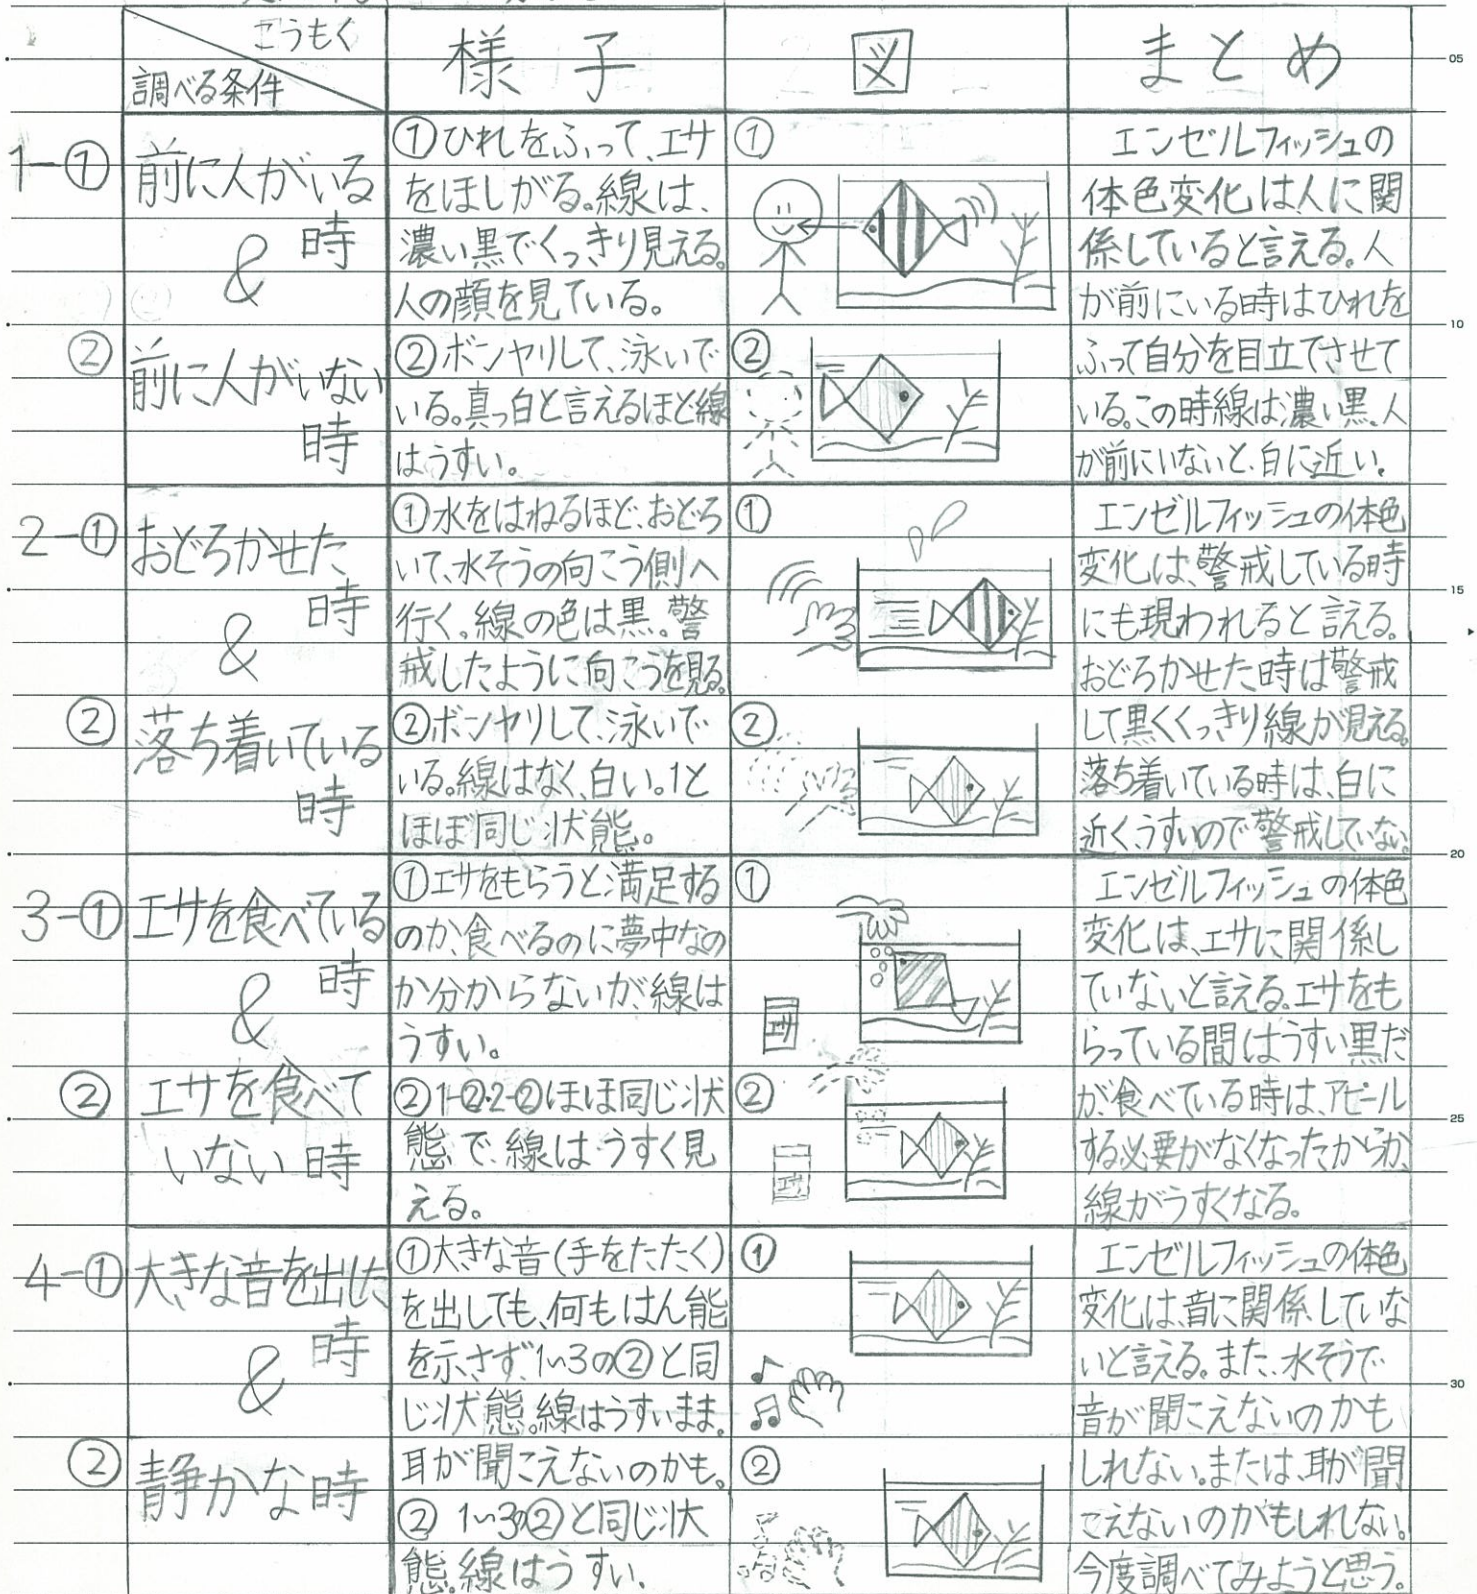 こうもく
調べる条件
様子
図
まとめ
1-①
前に人がいる
時
&
②
前に人がいない
時
①ひれをふって、エサ
をほしがる。線は、
濃い黒でくっきり見える。
人の顔を見ている。
②ボンヤリして、泳いで
いる。真っ白と言えるほど線
はうすい。
①
②
エンゼルフィッシュの
体色変化は人に関
係していると言える。人
が前にいる時はひれを
ふって自分を目立てさせて
いる。この時線は濃い黒。人
が前にいないと、白に近い。
2-①
おどろかせた
時
&
②
落ち着いている
時
①水をはねるほど、おどろ
いて、水そうの向こう側へ
行く。線の色は黒。警
戒したように向こうを見る。
②ボンヤリして、泳いで
いる。線はなく、白い。1と
ほぼ同じ状態。
①
②
エンゼルフィッシュの体色
変化は、警戒している時
にも現われると言える。
おどろかせた時は警戒
して黒くくっきり線が見える。
落ち着いている時は、白に
近く、うすいので警戒していない。
3-①
エサを食べている
時
&
②
エサを食べて
いない時
①エサをもらうと満足する
のか、食べるのに夢中なの
か分からないが、線は
うすい。
②1-②2-②ほぼ同じ状
態で、線はうすく見
える。
①
エサ
②
エサ
エンゼルフィッシュの体色
変化は、エサに関係し
ていないと言える。エサをも
らっている間はうすい黒だ
が、食べている時は、アピール
する必要がなくなったからか、
線がうすくなる。
4-①
大きな音を出した
時
&
②
静かな時
①大きな音(手をたたく)
を出しても、何もはん能
を示さず、1~3の②と同
じ状態。線はうすいまま。
耳が聞こえないのかも。
② 1~3の②と同じ状
態。線はうすい。
①
②
エンゼルフィッシュの体色
変化は、音に関係していな
いと言える。また、水そうで
音が聞こえないのかも
しれない。または、耳が聞
こえないのかもしれない。
今度調べてみようと思う。
05
10
15
20
25
30